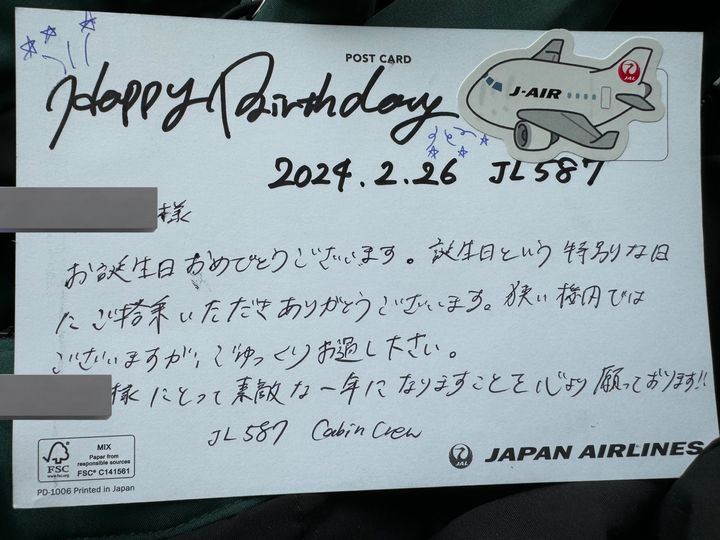 POST CARD
Happy Birthday
J-AIR
JAL
2024.2.26 JL587
様
お誕生日おめでとうございます。誕生日という特別な日
にご搭乗いただきありがとうございます。狭い機内では
ございますが、ごゆっくりお過し下さい。
様にとって素敵な一年になりますことを心より願っております!!
JL587 Cabin Crew
JAL JAPAN AIRLINES
FSC
www.fsc.org
MIX
Paper from
responsible sources
FSC® C141561
PD-1006 Printed in Japan